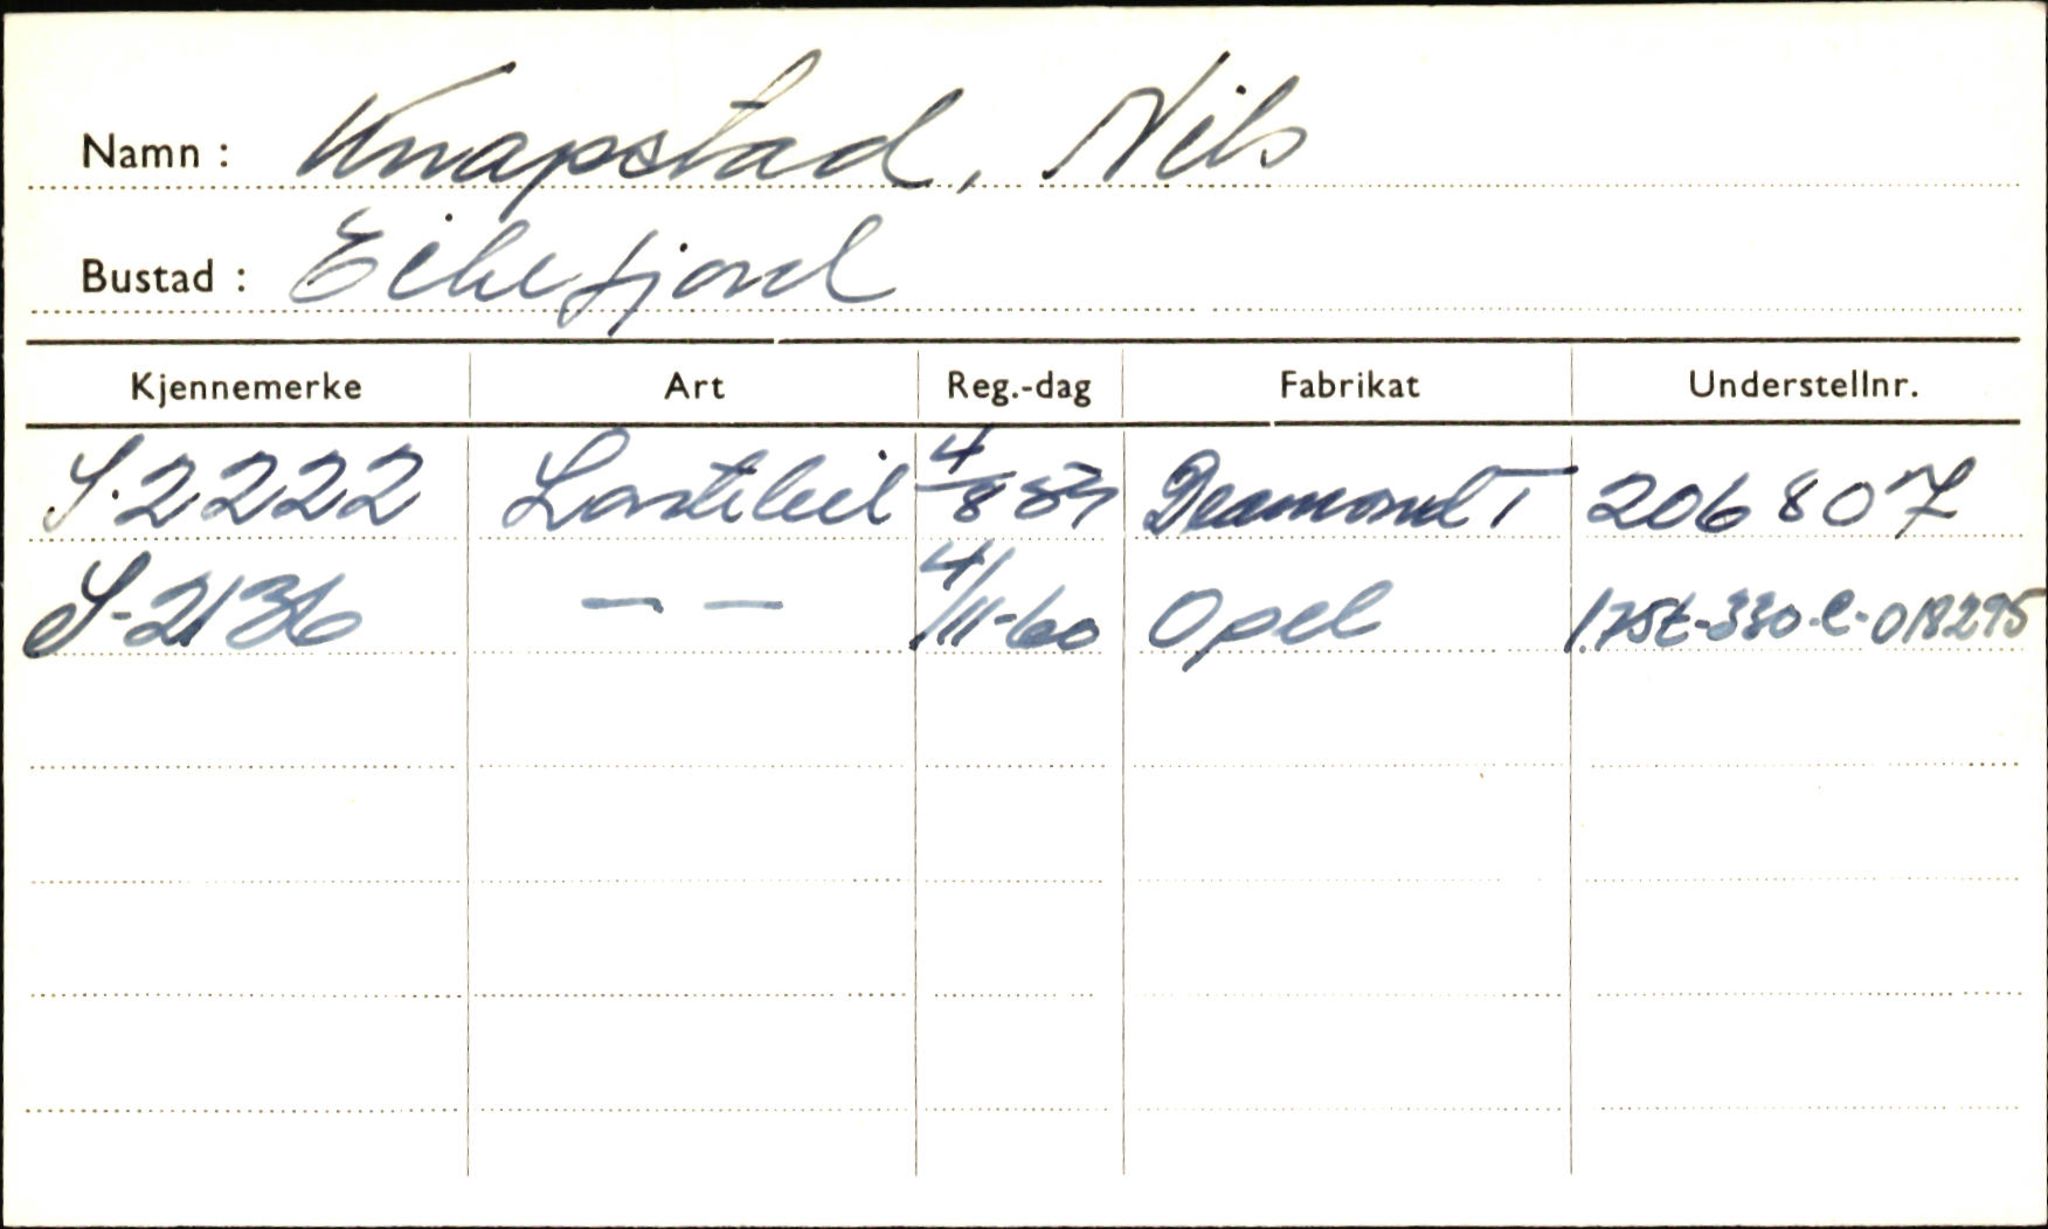 Namn : Knapstad, Nils
Bustad : Eikefjord
Kjennemerke Art Reg.-dag Fabrikat Understellnr.
S-2222 Lastebil 4/8 Deamond T 206807
S-2136 — — 4/11-60 Opel 1.75t-330-C-018295